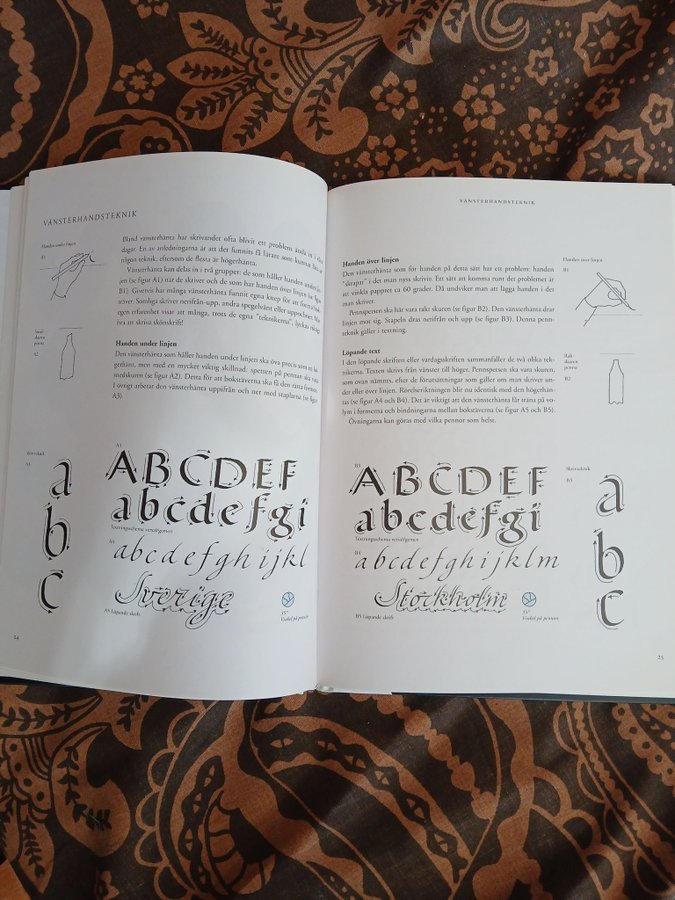 VÄNSTERHANDSTEKNIK
Handen under linjen
B1
Bland vänsterhänta har skrivandet ofta blivit ett problem ända in i våra
dagar. En av anledningarna är att det funnits få lärare som kunnat lära ut
någon teknik, eftersom de flesta är högerhänta.
Vänsterhänta kan delas in i två grupper: de som håller handen under linjen
(se figur A1) när de skriver och de som har handen över linjen (se figur
B1). Givetvis har många vänsterhänta funnit egna knep för att
Somliga skriver nerifrån-upp, andra spegelvänt eller uppochner. Min
egen erfarenhet visar att många, trots de egna "teknikerna", lyckas riktigt
bra att skriva skönskrift!
Snedskuren
penna
A2
Handen under linjen
Den vänsterhänta som håller handen under linjen ska öva precis som en
högerhänt, men med en mycket viktig skillnad: spetsen på pennan ska vara
snedskuren (se figur A2). Detta för att bokstäverna ska få den rätta formen.
I övrigt arbetar den vänsterhänta uppifrån och ner med staplarna (se figur
A3).
A3
a
b
c
ABCDEF
abcdefgi
abcdefghijkl
Sverige
A5 Löpande skrift
35°
Vinkel på pennan
24
VÄNSTERHANDSTEKNIK
Handen över linjen
Den vänsterhänta som för handen på detta sätt har ett problem: handen
"skrapar" i det man nyss skrivit. Ett sätt att komma runt det problemet är
att vinkla pappret ca 60 grader. Då undviker man att lägga handen i det
man skriver.
Pennspetsen ska här vara rakt skuren (se figur B2). Den vänsterhänta drar
linjen mot sig. Stapeln dras nerifrån och upp (se figur B3). Denna penn-
teknik gäller i textning.
Handen över linjen
B1
Löpande text
I den löpande skriften eller vardagsskriften sammanfaller de två olika tek-
nikerna. Texten skrivs från vänster till höger. Pennspetsen ska vara skuren,
som ovan nämnts, efter de förutsättningar som gäller om man skriver un-
der eller över linjen. Rörelseriktningen blir nu identisk med den högerhän-
tas (se figur A4 och B4). Det är viktigt att den vänsterhänta får träna på vo-
lym i formerna och bindningarna mellan bokstäverna (se figur A5 och B5).
Övningarna kan göras med vilka pennor som helst.
Rakskuren
penna
B2
ABCDEF
abcdefgi
B4
abcdefghijklm
Stockholm
B5 Löpande skrift
35°
Vinkel på pennan
Skrivteknik
B3
a
b
c
25